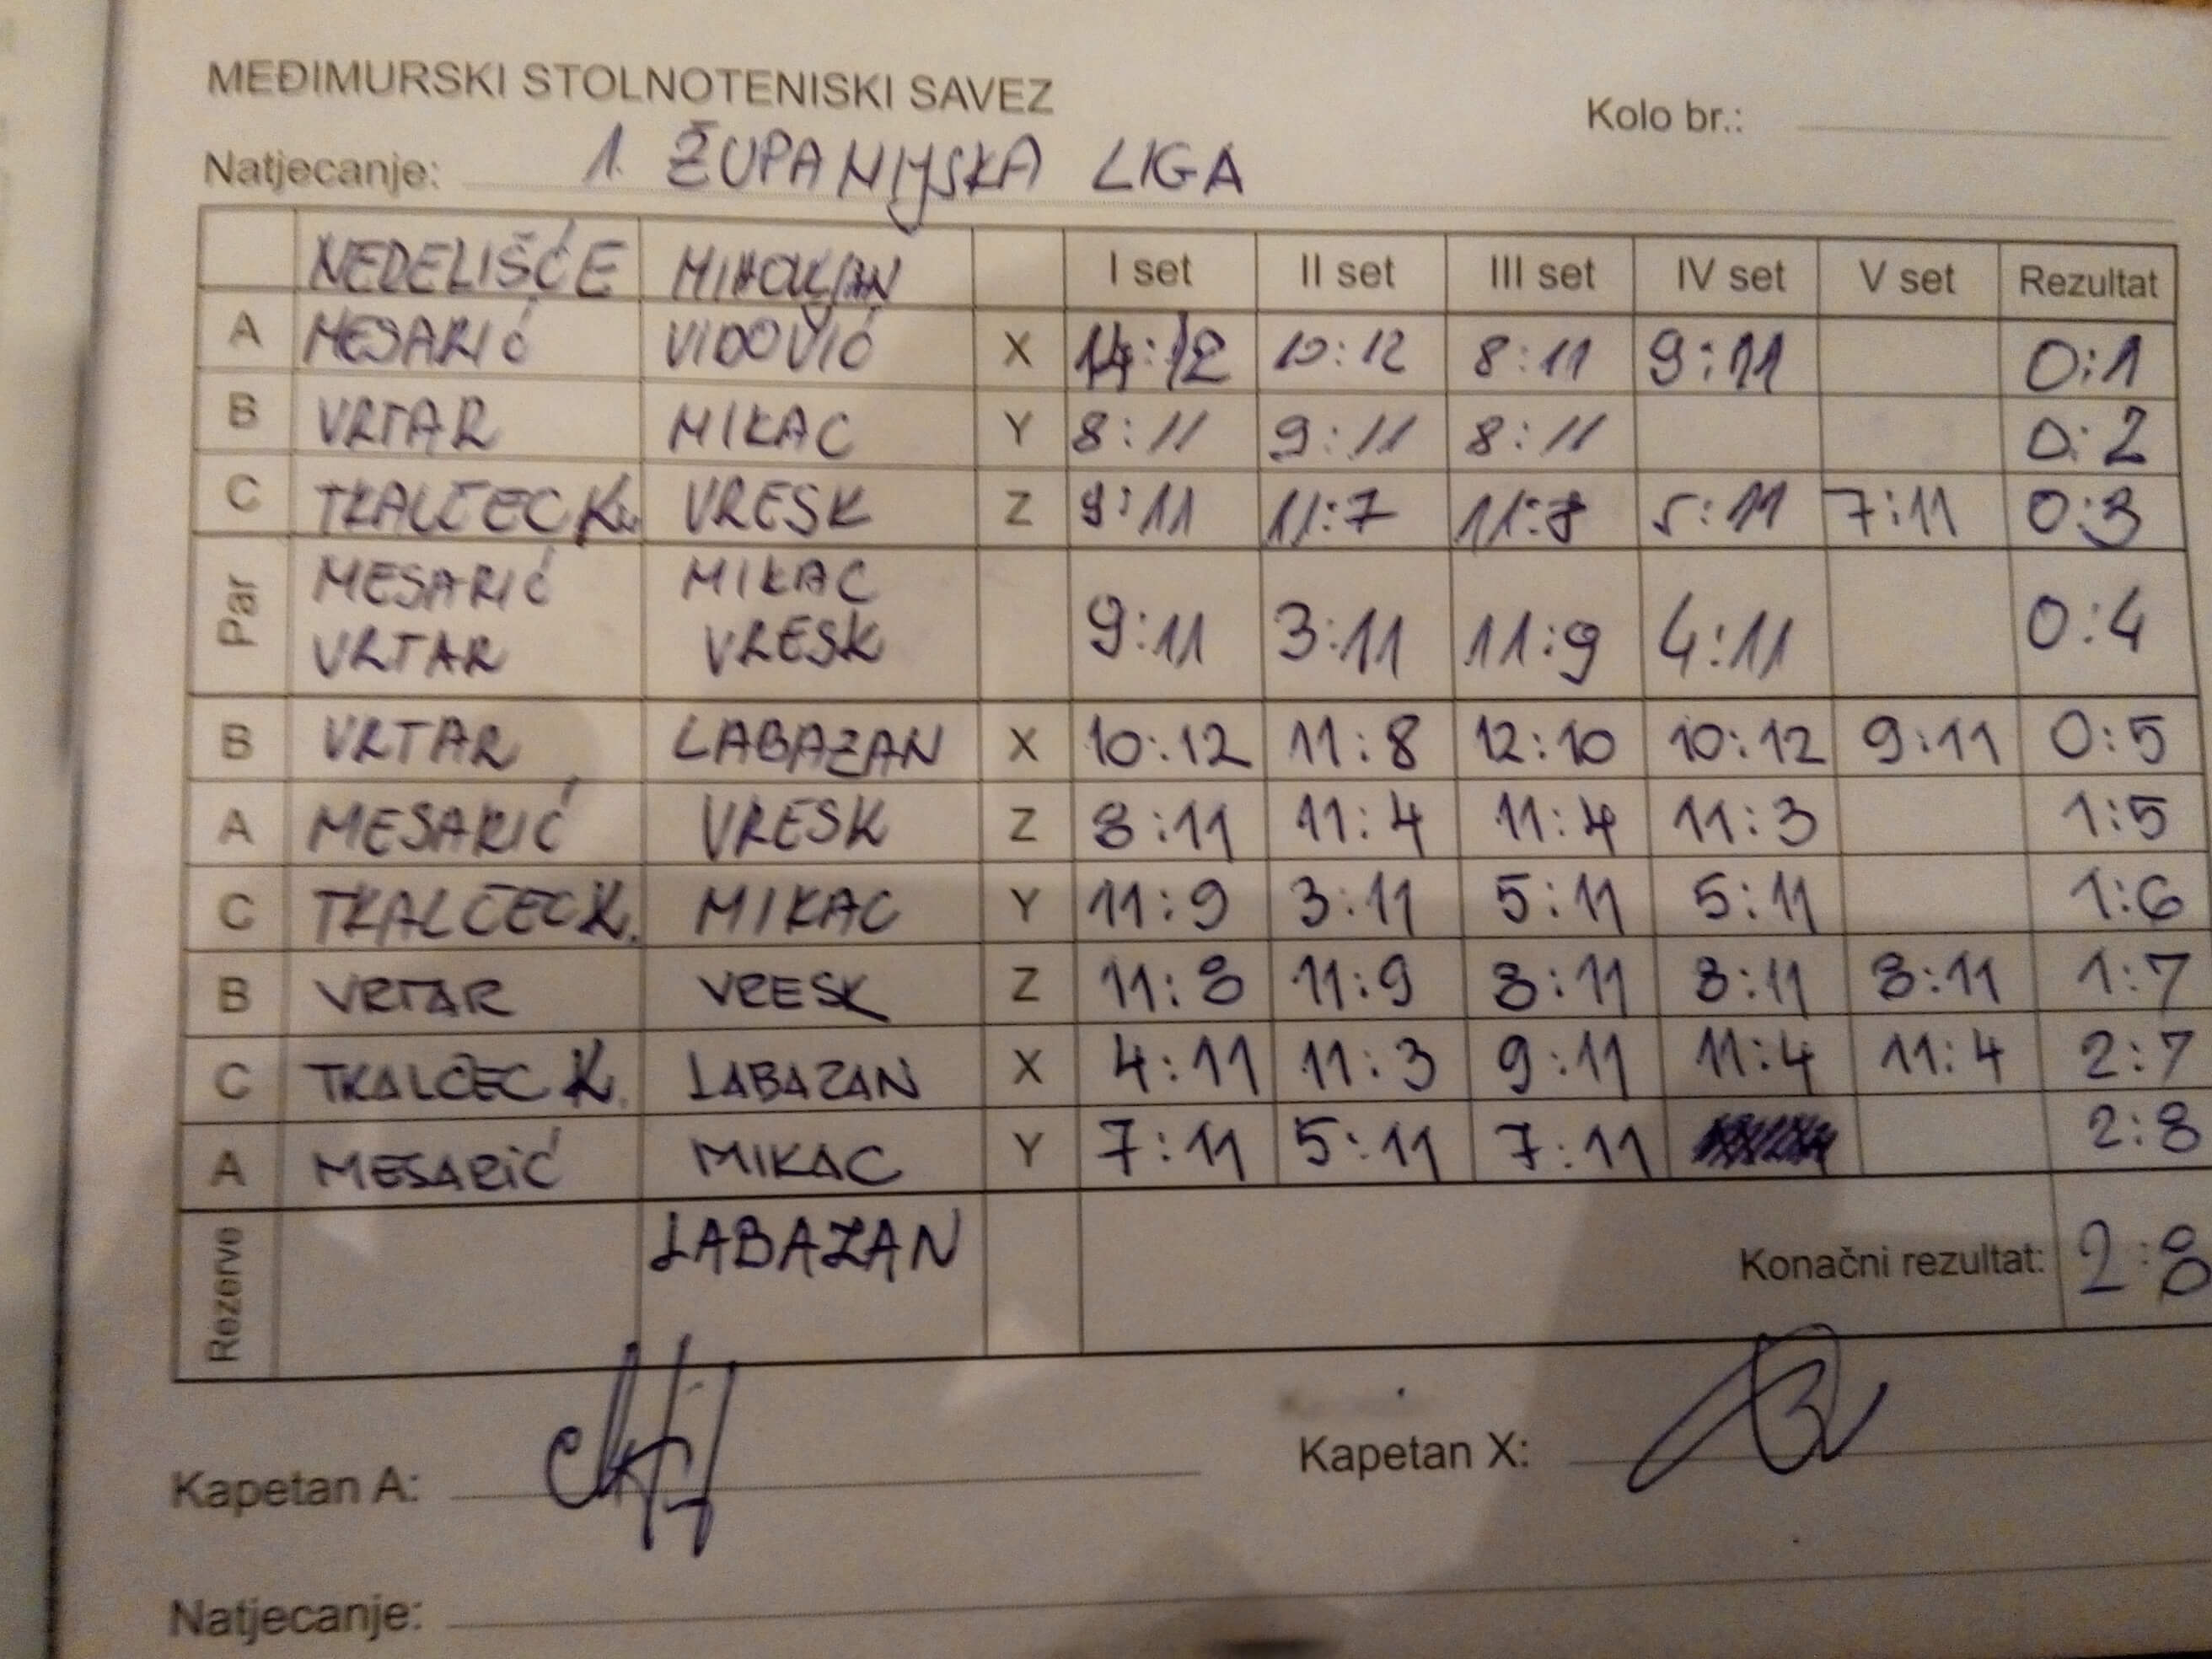 MEĐIMURSKI STOLNOTENISKI SAVEZ
Kolo br.:
Natjecanje: 1. ŽUPANIJSKA LIGA
NEDELIŠĆE MIHOVLJAN I set II set III set IV set V set Rezultat
A MESARIĆ VIDOVIĆ X 14:12 10:12 8:11 9:11 0:1
B VRTAR MIKAC Y 8:11 9:11 8:11 0:2
C TKALČEC K. VRESK Z 9:11 11:7 11:8 5:11 7:11 0:3
Par MESARIĆ MIKAC
VRTAR VRESK 9:11 3:11 11:9 4:11 0:4
B VRTAR LABAZAN X 10:12 11:8 12:10 10:12 9:11 0:5
A MESARIĆ VRESK Z 8:11 11:4 11:4 11:3 1:5
C TKALČEC K. MIKAC Y 11:9 3:11 5:11 5:11 1:6
B VRTAR VRESK Z 11:8 11:9 8:11 8:11 8:11 1:7
C TKALČEC K. LABAZAN X 4:11 11:3 9:11 11:4 11:4 2:7
A MESARIĆ MIKAC Y 7:11 5:11 7:11 2:8
Rezerve LABAZAN Konačni rezultat: 2:8
Kapetan A: Kapetan X:
Natjecanje: